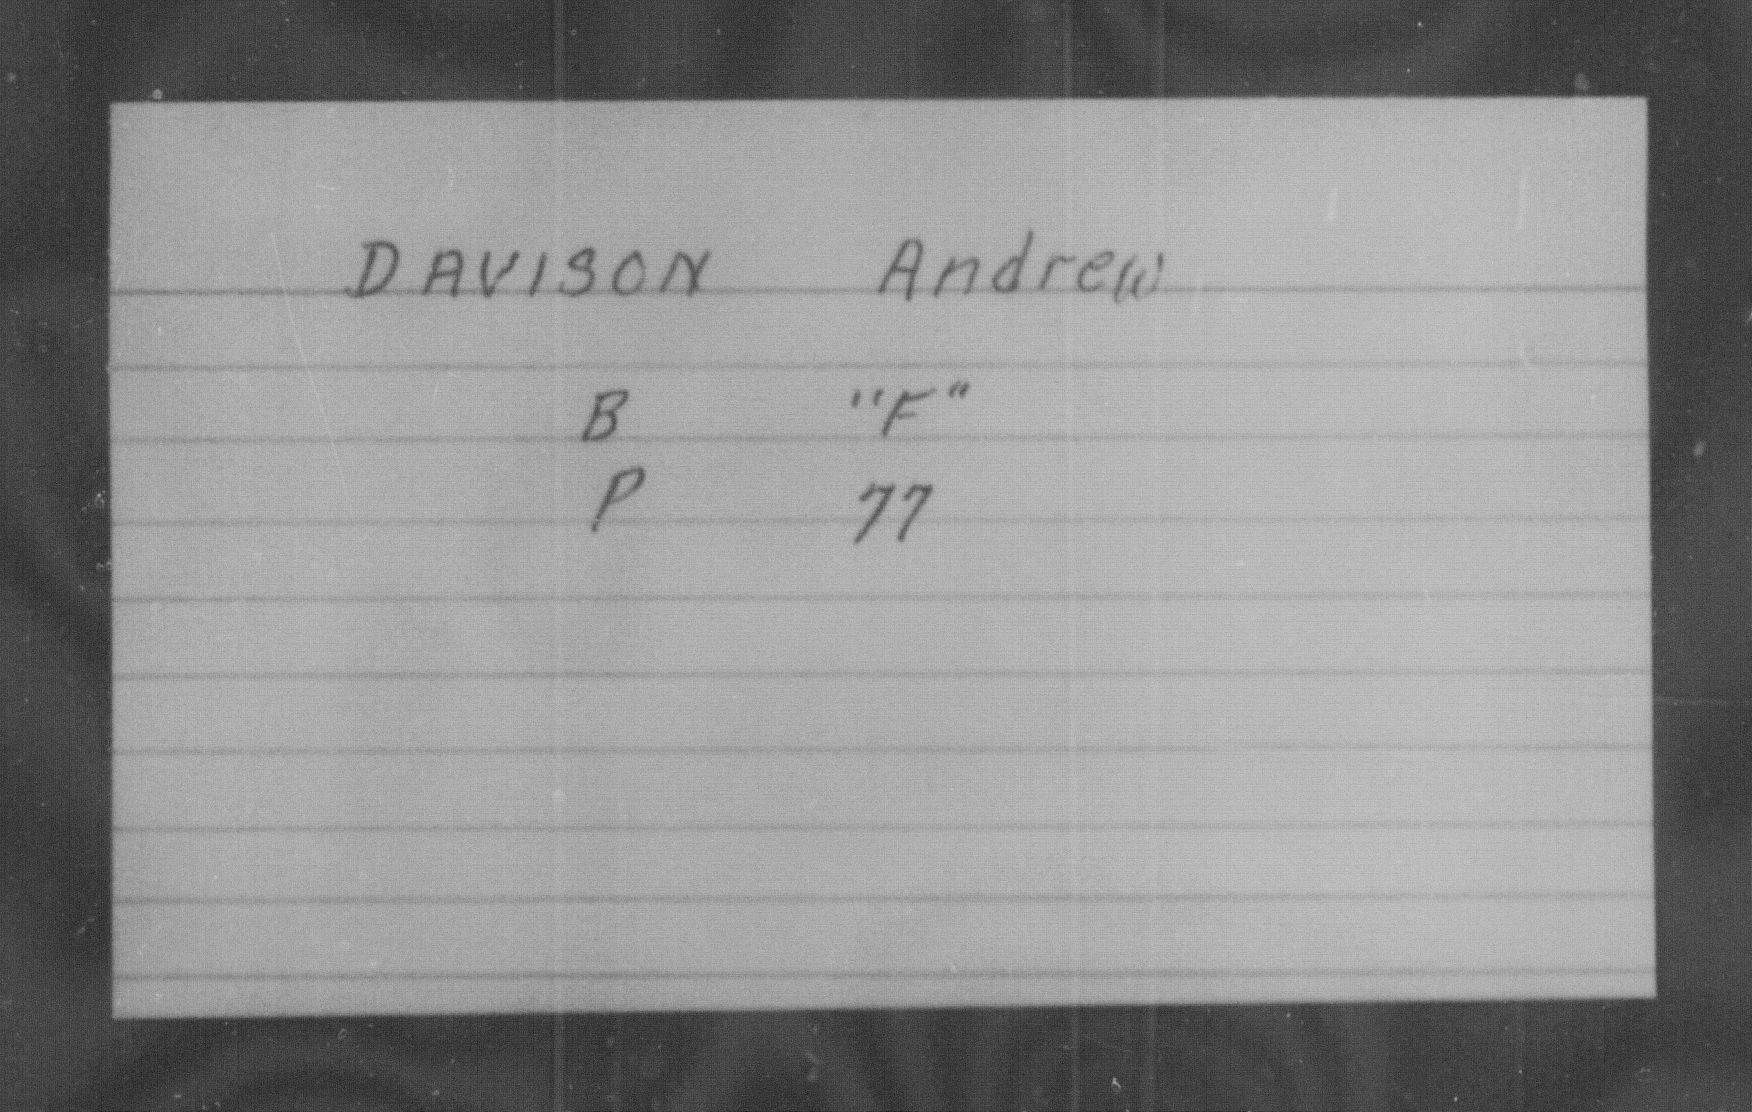 DAVISON Andrew
B "F"
P 77